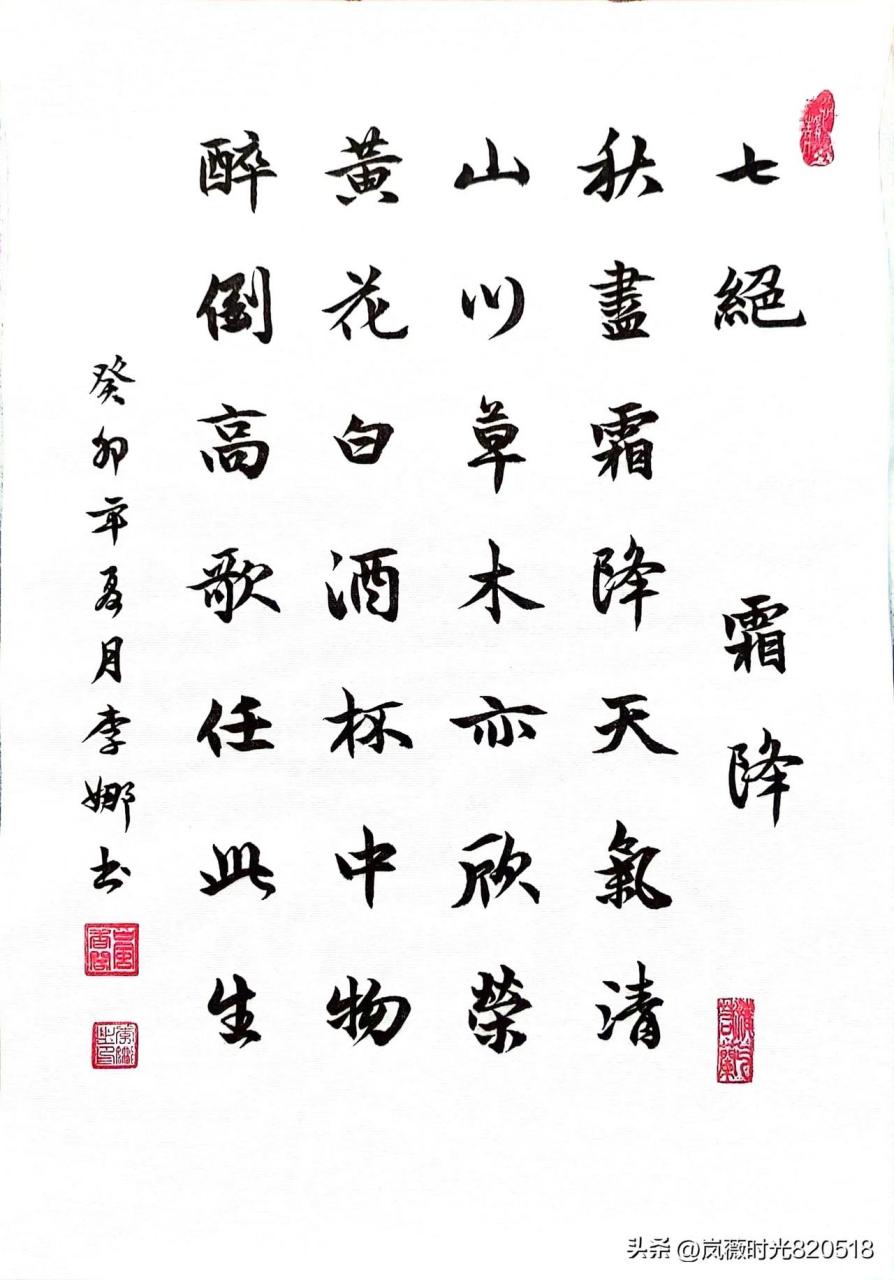 七絕 霜降
秋盡霜降天氣清
山川草木亦欣榮
黃花白酒杯中物
醉倒高歌任此生
癸卯年夏月李娜书
头条 @岚薇时光820518